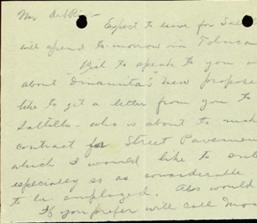 Expect to leave for
will spend to-morrow in
to speak to you
about Dinamita's new propose
like to get a letter from you to
Saltillo - who is about to
contract for Street Pavement
which I would like to
especially so as considerable
to be employed. Also would
If you prefer will call